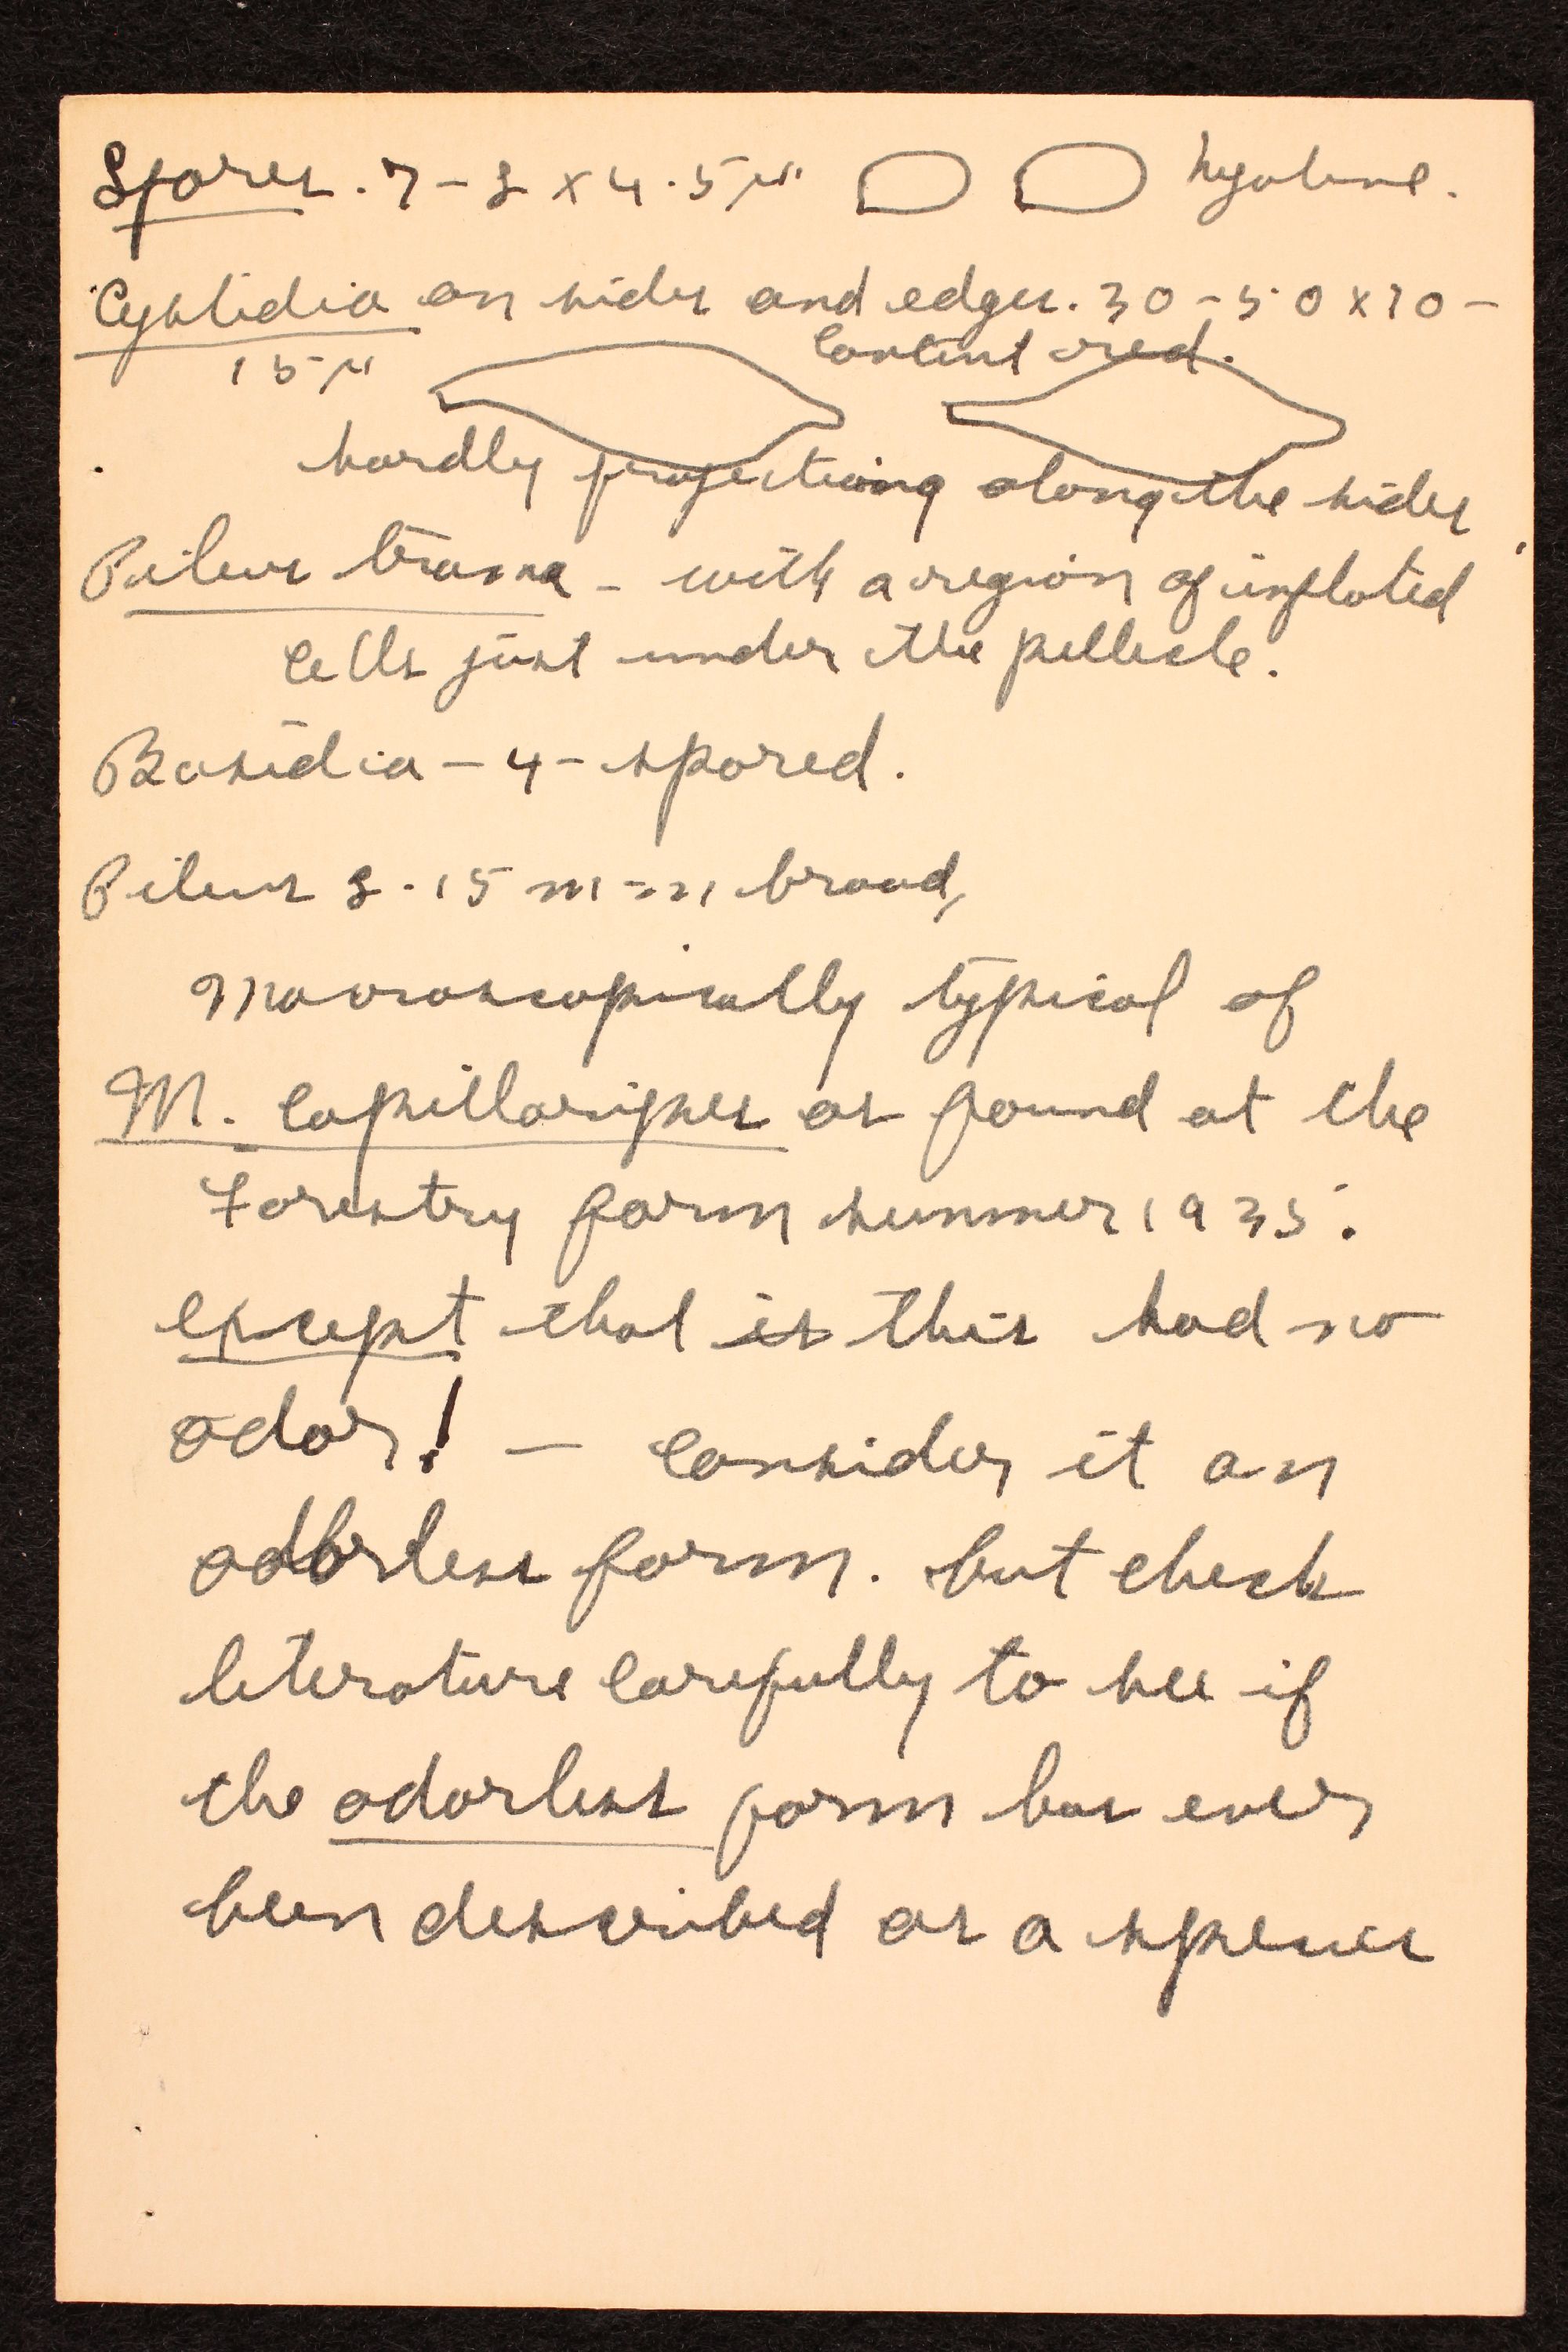 Spores. 7-8 x 4.5µ hyaline.
Cystidia on sides and edges. 30-50 x 10-
15µ content red.
hardly projecting along the sides
Pileus trama - with a region of inflated
cells just under the pellicle.
Basidia - 4 - spored.
Pileus 8-15 mm broad,
Macroscopically typical of
M. capillaripes as found at the
Forestry farm summer 1935.
except that is this had no
odor! - consider it an
odorless form. but check
literature carefully to see if
the odorless form has ever
been described as a species